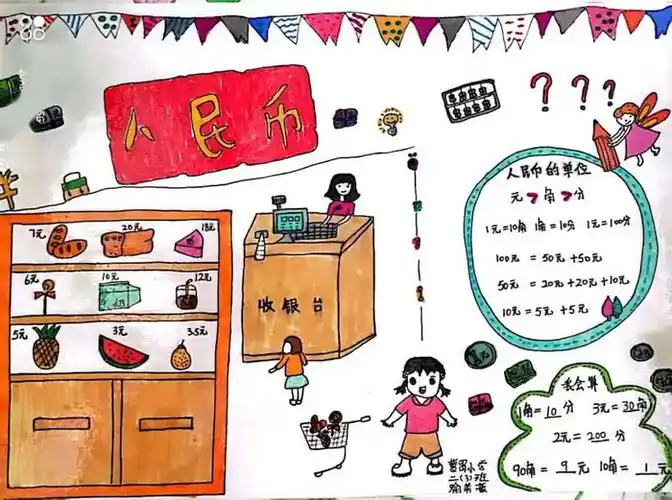 人民币
7元 20元 18元
6元 10元 12元
5元 3元 35元
收银台
人民币的单位
元>角>分
1元=10角 1角=10分 1元=100分
100元 = 50元+50元
50元 = 20元+20元+10元
10元=5元+5元
我会算
1角=10分 3元=30角
2元=200分
90角=9元 10角=1元
二(3)班